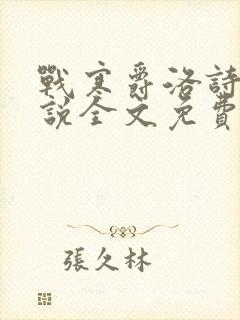 戰寒爵洛詩
說全文免費
張久林